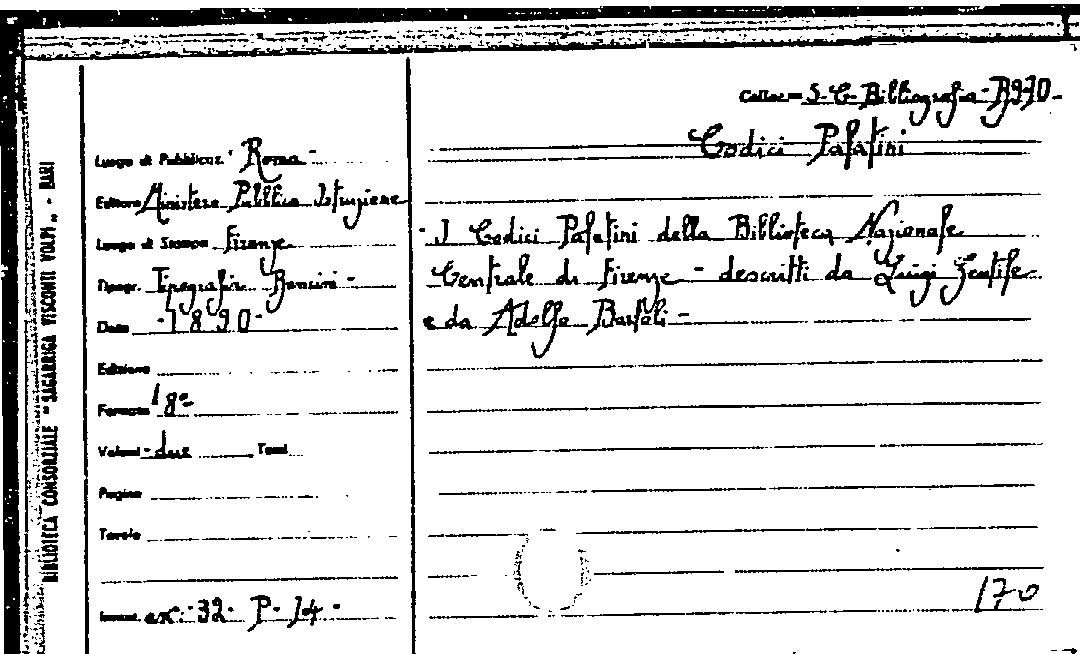 BIBLIOTECA CONSORZIALE "SAGARRIGA VISCONTI VOLPI" - BARI
Colloc. S-C-Bibliografia-B970-
Codici Palatini
Luogo di Pubblicaz. Roma-
Editore Ministero Pubblica Istruzione
Luogo di Stampa Firenze
Tipogr. Tipografia Bencini-
Data -1890-
Edizione
Formato 18º-
Volumi -due Tomi
Pagine
Tavole
Invent. ex:-32- P-14-
-I Codici Palatini della Biblioteca Nazionale
Centrale di Firenze - descritti da Luigi Gentile
e da Adolfo Bartoli-
170